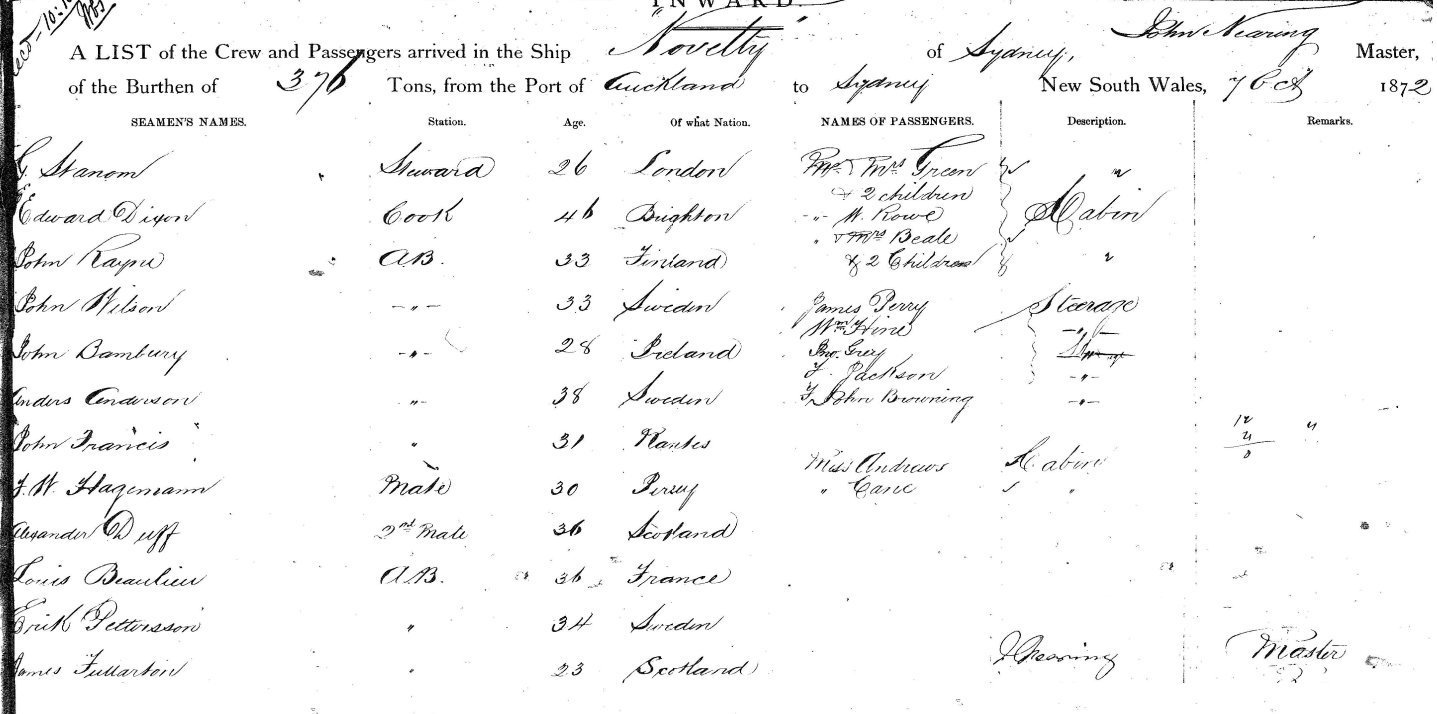 INWARD.
A LIST of the Crew and Passengers arrived in the Ship "Novelty" of Sydney, John Nearing Master,
of the Burthen of 376 Tons, from the Port of Auckland to Sydney New South Wales, 7 Oct 1872
SEAMEN'S NAMES. Station. Age. Of what Nation. NAMES OF PASSENGERS. Description. Remarks.
G. Stanom Steward 26 London Mr & Mrs Green "
& 2 children
Edward Dixon Cook 46 Brighton " W. Rowe Cabin
" & Mrs Beale
John Rayne AB. 33 Finland & 2 Children "
John Wilson -"- 33 Sweden James Perry Steerage
Wm Hine -"-
John Bambury -"- 28 Ireland Jno. Grey
F. Jackson -"-
Anders Anderson "- 38 Sweden John Browning -"-
John Francis " 31 Nantes
Miss Andrews Cabin
F. W. Hagemann Mate 30 Jersey " Cane "
Alexander Duff 2nd Mate 36 Scotland
Louis Beaulieu A.B. 36 France
Erik Pettersson " 34 Sweden
James Fullarton " 23 Scotland J Nearing Master